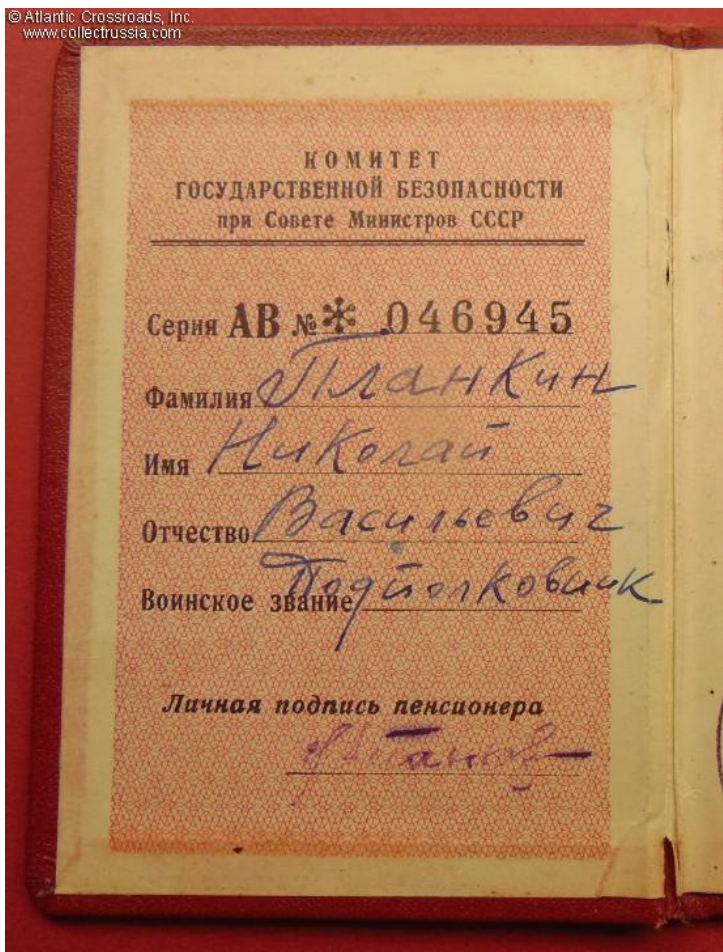 © Atlantic Crossroads, Inc.
www.collectrussia.com
КОМИТЕТ
ГОСУДАРСТВЕННОЙ БЕЗОПАСНОСТИ
при Совете Министров СССР
Серия АВ №* 046945
Фамилия Планкин
Имя Николай
Отчество Васильевич
Воинское звание Подполковник
Личная подпись пенсионера